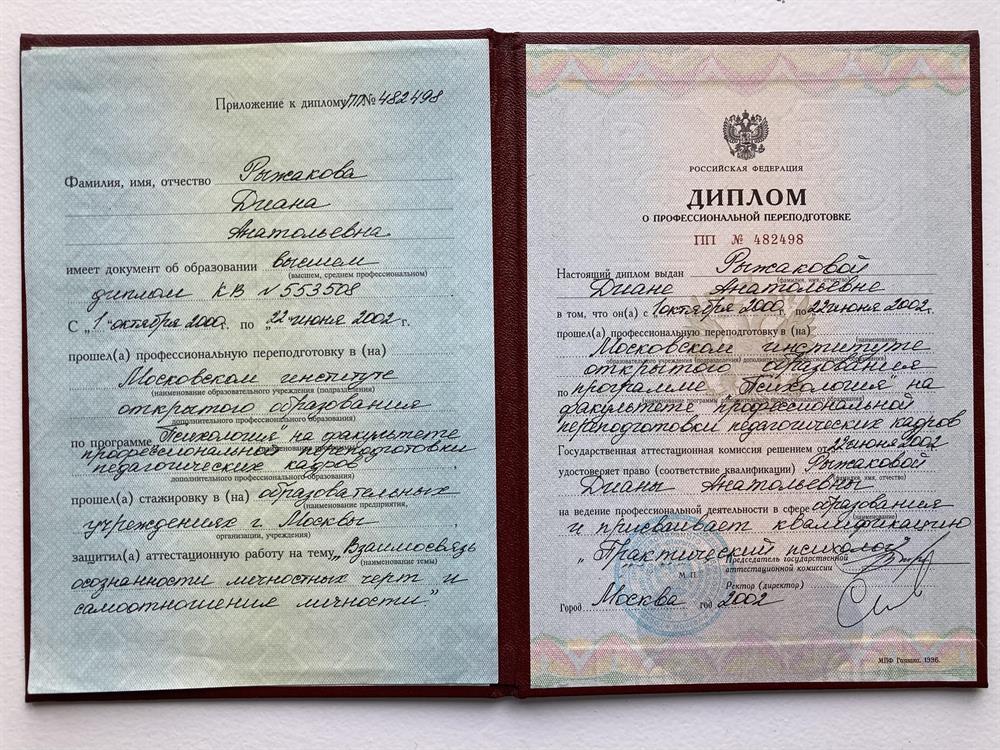 Приложение к диплому ПП № 482498
Фамилия, имя, отчество Рыжакова
Диана
Анатольевна
имеет документ об образовании высшем
(высшем, среднем профессиональном)
диплом КВ № 553508
С „1“ октября 2000 г. по „22“ июня 2002 г.
прошел(а) профессиональную переподготовку в (на)
Московском институте
(наименование образовательного учреждения (подразделения)
открытого образования
дополнительного профессионального образования)
по программе „Психология" на факультете
профессиональной переподготовки
педагогических кадров
дополнительного профессионального образования)
прошел(а) стажировку в (на) образовательных
(наименование предприятия,
учреждениях г. Москвы
организации, учреждения)
защитил(а) аттестационную работу на тему „Взаимосвязь
(наименование темы)
осознанности личностных черт и
самоотношения личности."
РОССИЙСКАЯ ФЕДЕРАЦИЯ
ДИПЛОМ
О ПРОФЕССИОНАЛЬНОЙ ПЕРЕПОДГОТОВКЕ
ПП № 482498
Настоящий диплом выдан Рыжаковой
(фамилия, имя, отчество)
Диане Анатольевне
в том, что он(а) с 1 октября 2000 г. по 22 июня 2002 г.
прошел(а) профессиональную переподготовку в (на)
Московском институте
(наименование
образовательного учреждения (подразделения) дополнительного профессионального образования)
открытого образования
по программе "Психология" на
факультете профессиональной
переподготовки педагогических кадров
Государственная аттестационная комиссия решением от 22 июня 2002
удостоверяет право (соответствие квалификации) Рыжаковой
(фамилия, имя, отчество)
Дианы Анатольевны
на ведение профессиональной деятельности в сфере образования
(наименование)
и присваивает квалификацию
„Практический психолог"
Председатель государственной
аттестационной комиссии
М. П.
Ректор (директор)
Город Москва год 2002
МПФ Гознака. 1996.